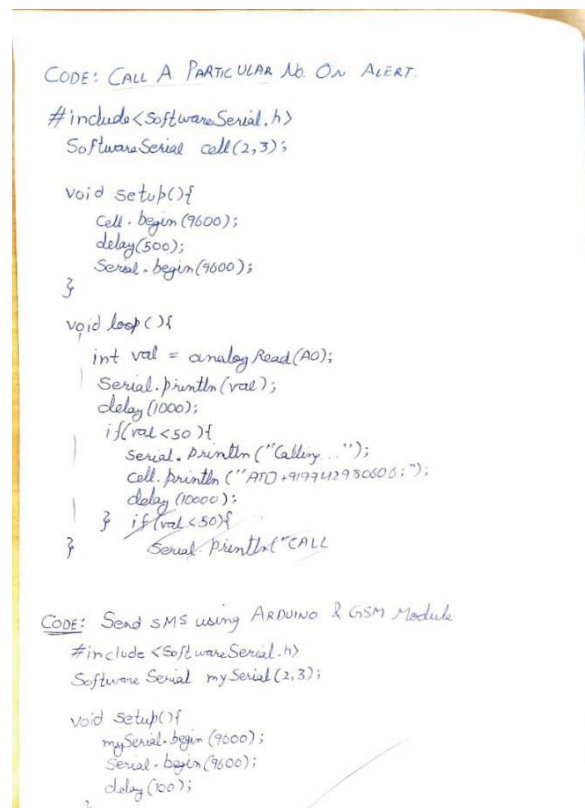 CODE: CALL A PARTICULAR No. ON ALERT.
#include<SoftwareSerial.h>
SoftwareSerial cell(2,3);
void setup(){
cell.begin(9600);
delay(500);
Serial.begin(9600);
}
void loop(){
int val = analogRead(A0);
Serial.println(val);
delay(1000);
if(val<50){
serial.println("Calling...");
cell.println("ATD+919742980606;");
delay(10000);
} if(val<50){
} Serial.println("CALL
CODE: Send SMS using ARDUINO & GSM Module
#include <SoftwareSerial.h>
Software Serial mySerial(2,3);
void setup(){
mySerial.begin(9600);
Serial.begin(9600);
delay(100);
}